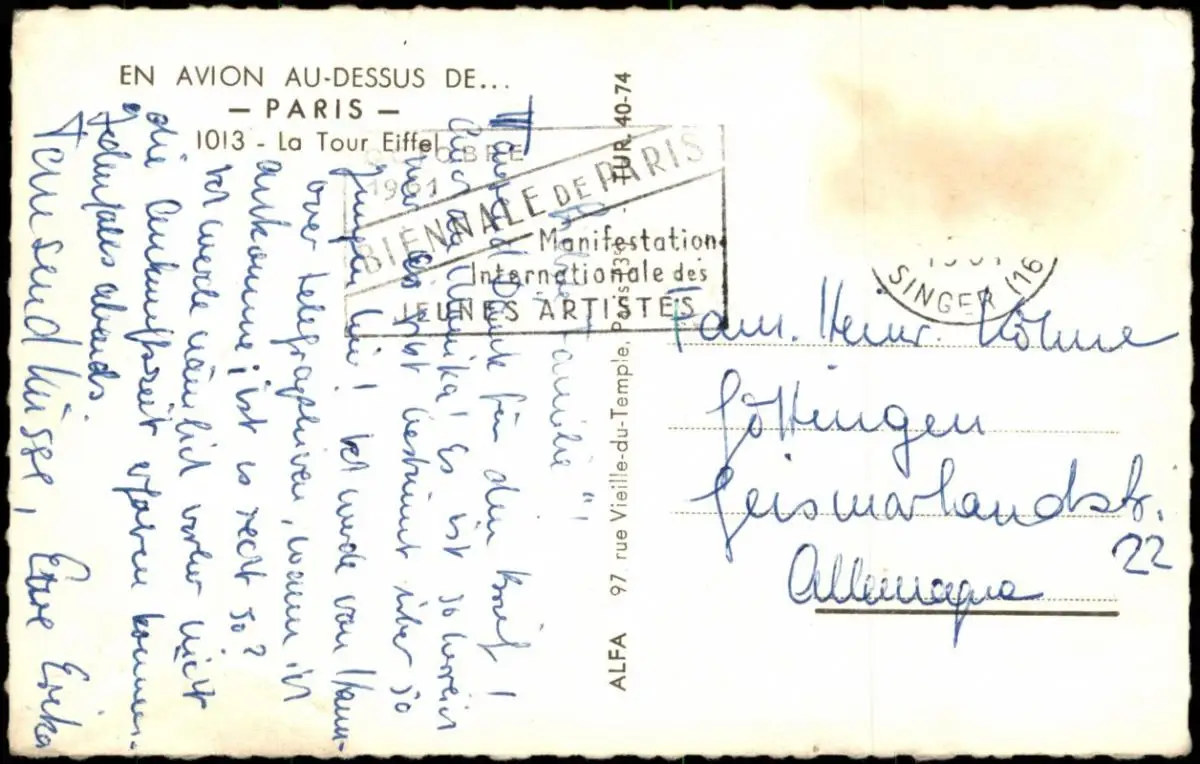 EN AVION AU-DESSUS DE...
— PARIS —
1013 - La Tour Eiffel
OCTOBRE
1961
BIENNALE DE PARIS
Manifestation
Internationale des
JEUNES ARTISTES
ALFA 97, rue Vieille-du-Temple, Paris-3e - TUR. 40-74
SINGER (16
Fam. Heinr. Köhne
Göttingen
Geismarlandstr.
22
Allemagne
Familie!
Tausend Dank für den Brief!
Es ist so
ist bestimmt
hin! Ich werde von
oder telegraphieren, wann ich
ankomme, ist es recht so?
Ich werde nämlich vorher nicht
die Ankunftszeit erfahren können.
Jedenfalls abends.
Tausend Küsse, Eure Erika